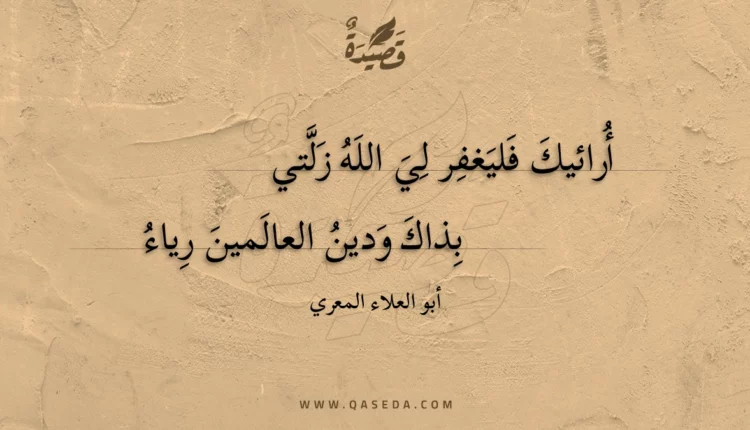 قَصِيْدَةٌ
أُرائيكَ فَليَغفِر لِيَ اللَهُ زَلَّتي
بِذاكَ وَدينُ العالَمينَ رِياءُ
أبو العلاء المعري
WWW.QASEDA.COM